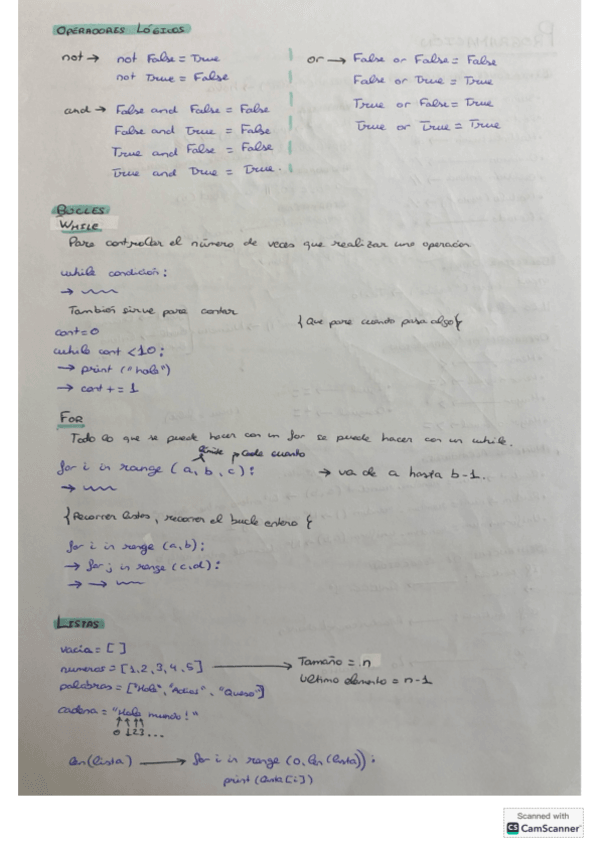 OPERADORES LÓGICOS
not → not False = True
not True = False
and → False and False = False
False and True = False
True and False = False
True and True = True.
or → False or False = False
False or True = True
True or False = True
True or True = True
BUCLES
WHILE
Para controlar el número de veces que realizar una operación
while condición:
→
También sirve para contar
{Que pare cuando pasa algo}
cont=0
while cont <10:
→ print ("hola")
→ cont += 1
FOR
Todo lo que se puede hacer con un for se puede hacer con un while.
límite cuanto
for i in range (a, b, c): → va de a hasta b-1.
→
{Recorrer listas, recorrer el bucle entero}
for i in range (a,b):
→ for j in range (c,d):
→ →
LISTAS
vacia = [ ]
numeros = [1,2,3,4,5] → Tamaño = n
Último elemento = n-1
palabras = ["Hola", "Adios", "Queso"]
cadena = "Hola mundo!"
0 1 2 3 ...
len(lista) → for i in range (0, len (lista)):
print (lista [i])
Scanned with
CS CamScanner